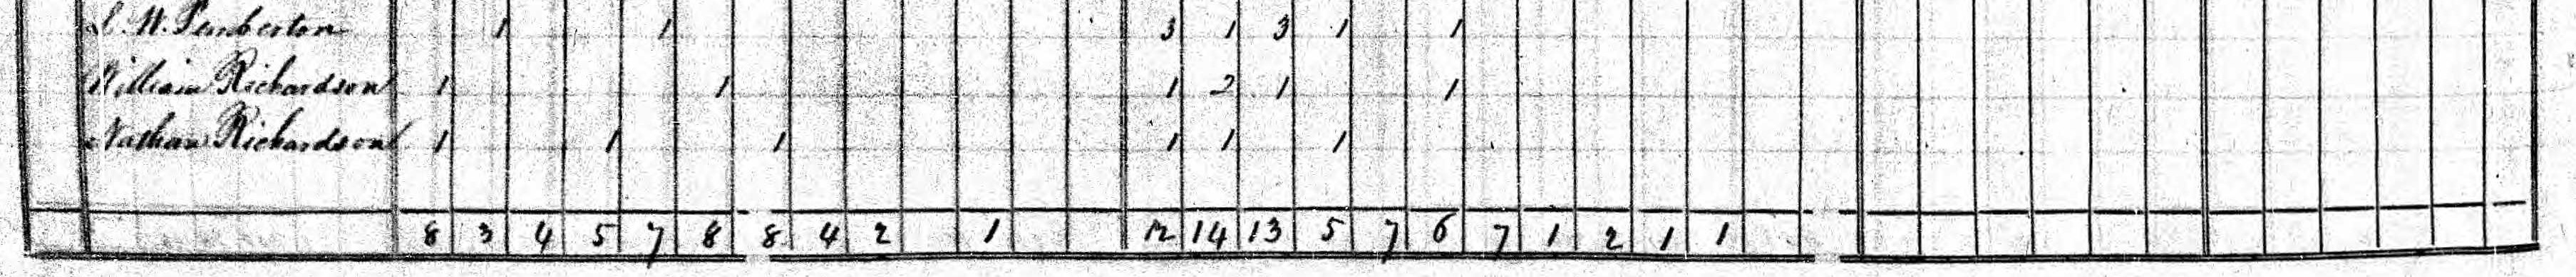 L. W. Pemberton 1 1 3 1 3 1 1
William Richardson 1 1 1 2 1 1
Nathan Richardson 1 1 1 1 1 1
8 3 4 5 7 8 8 4 2 1 12 14 13 5 7 6 7 1 2 1 1